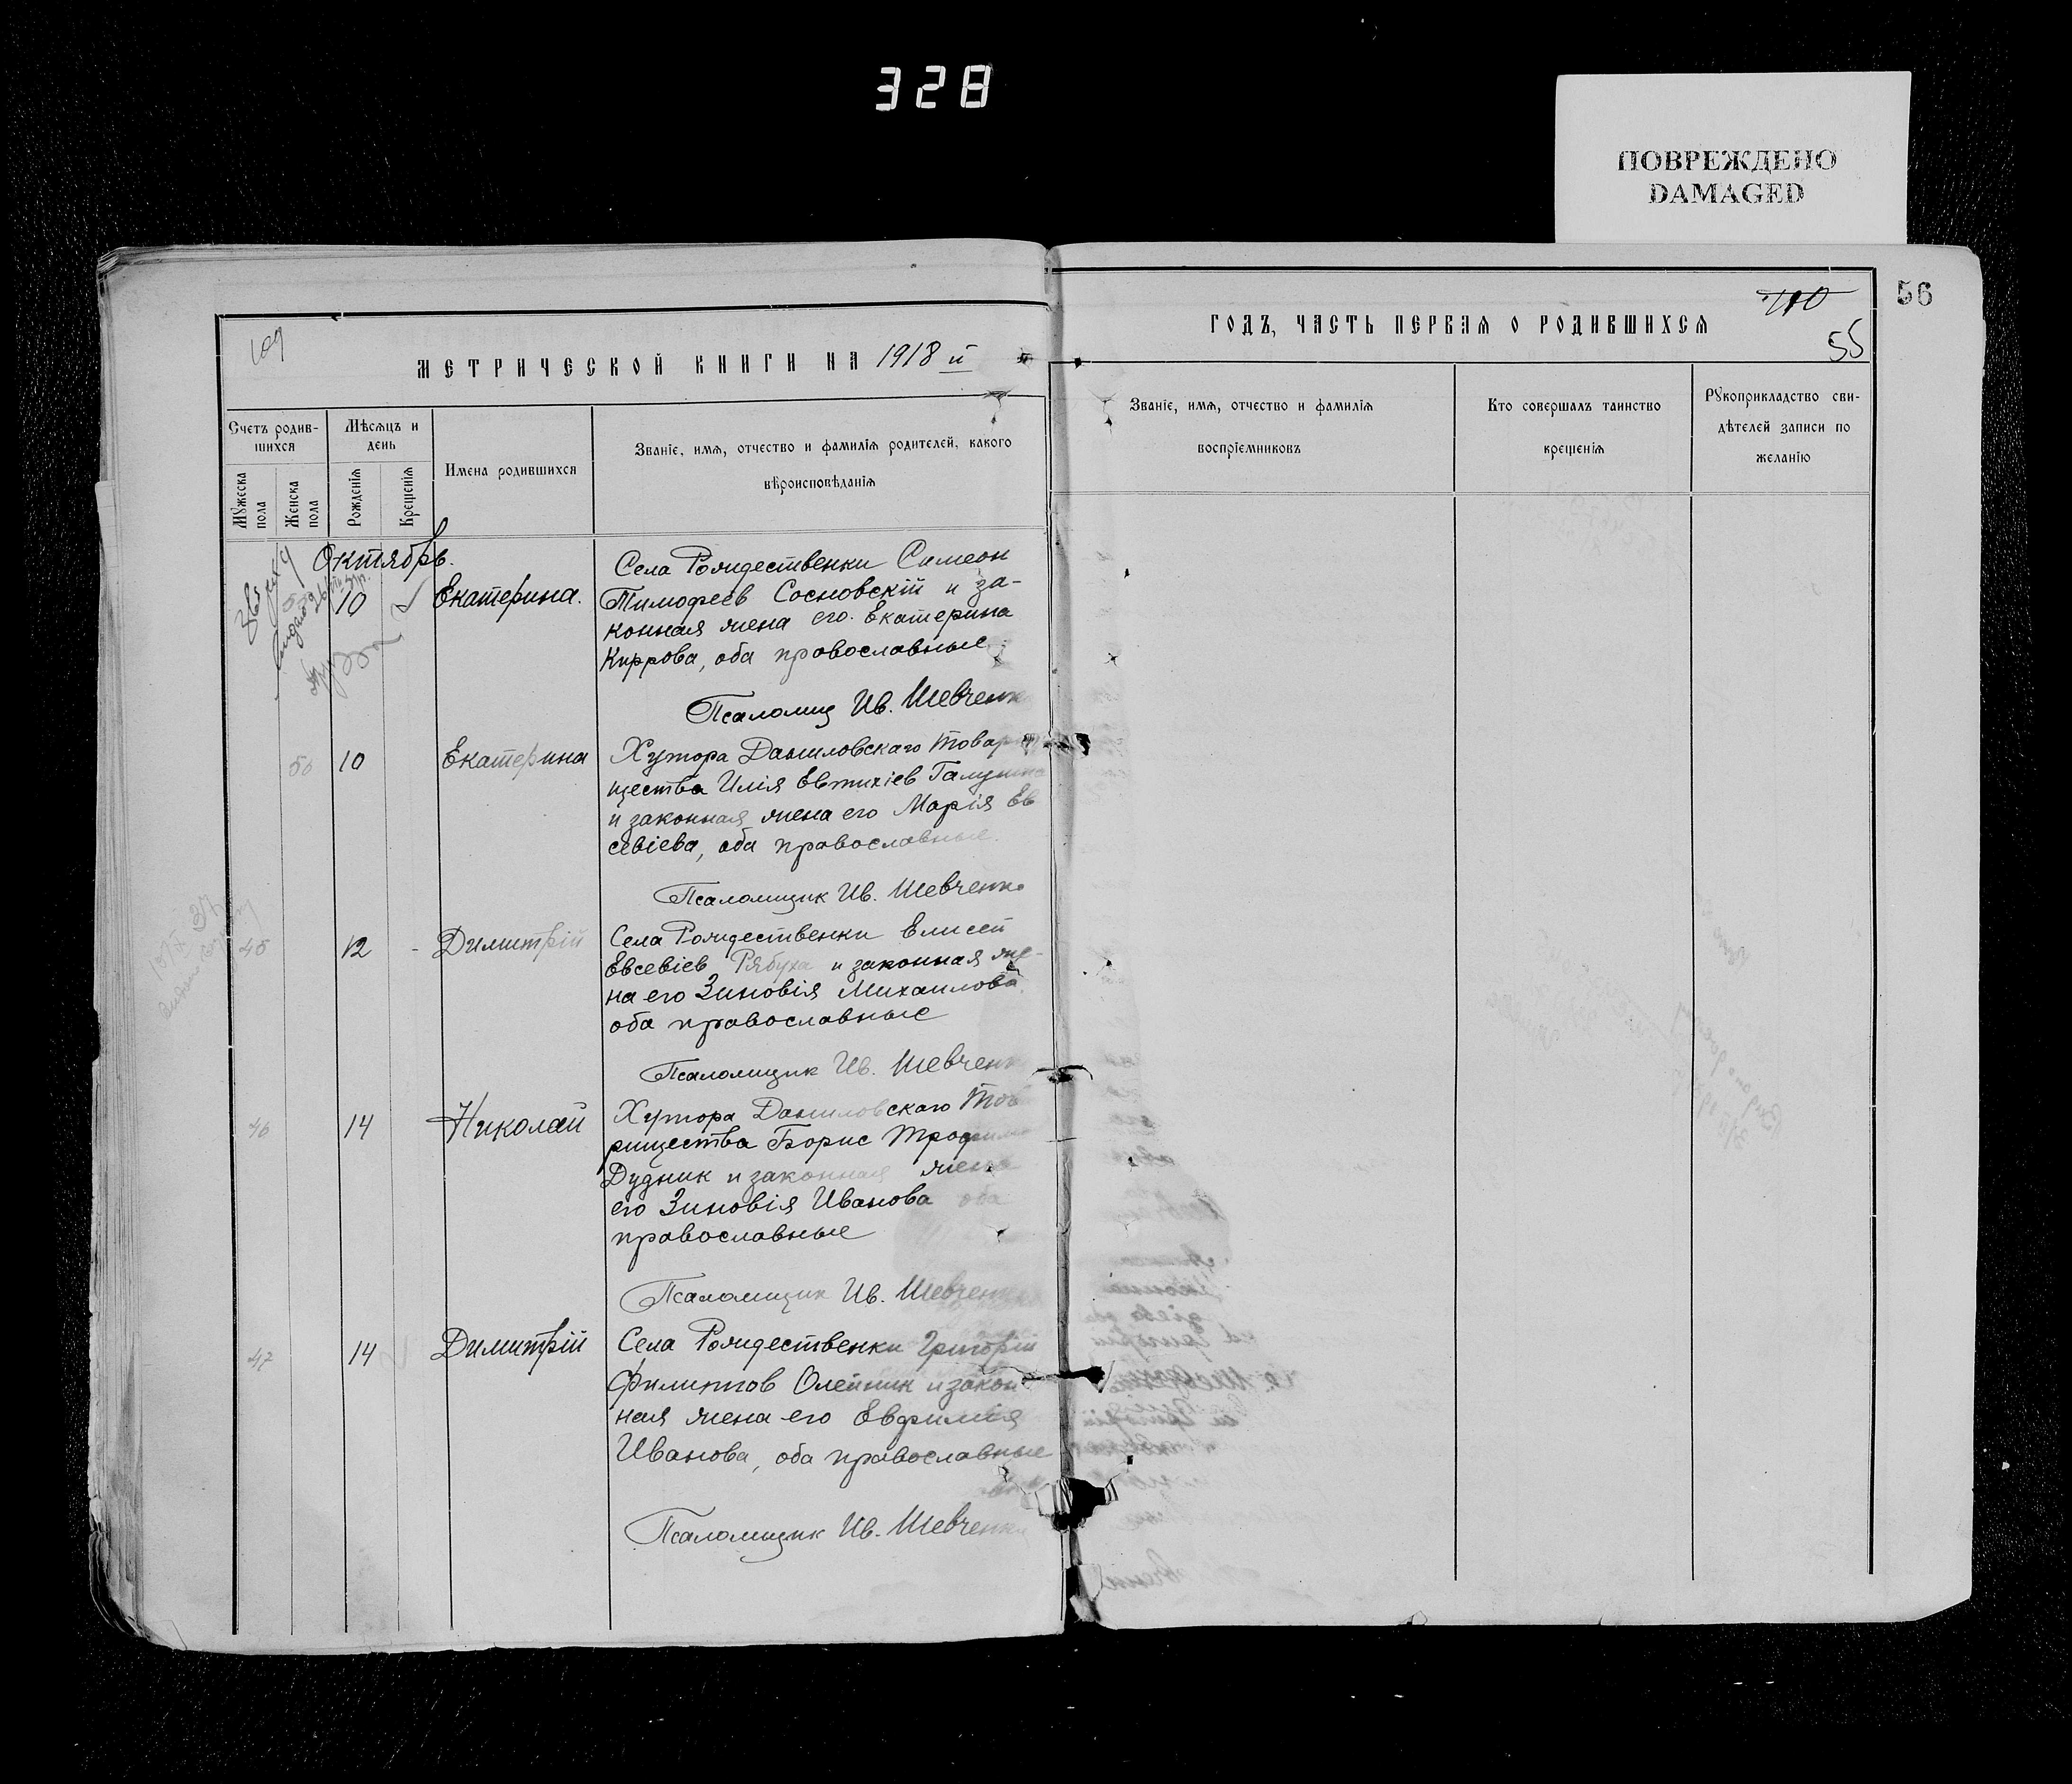 328
ПОВРЕЖДЕНО
DAMAGED
56
109
МЕТРИЧЕСКОЙ КНИГИ НА 1918 й
110
ГОДЪ, ЧАСТЬ ПЕРВАЯ О РОДИВШИХСЯ
55
Счетъ родив-
шихся
Мужеска пола
Женска пола
Мѣсяцъ и
день
Рожденія
Крещенія
Имена родившихся
Званіе, имя, отчество и фамилія родителей, какого
вѣроисповѣданія
Званіе, имя, отчество и фамилія
воспріемниковъ
Кто совершалъ таинство
крещенія
Рукоприкладство сви-
дѣтелей записи по
желанію
Октябрь.
10 Екатерина.
Села Рождественки Симеон
Тимофеев Сосновскій и за-
конная жена его Екатерина
Киррова, оба православные
Псаломщ Ив. Шевченк
50 10 Екатерина
Хутора Даниловскаго Товар
щества Илія Евтихіев
и законная жена его Марія Ев
севіева, оба православные.
Псаломщик Ив. Шевченко
45 12 - Димитрій
Села Рождественки Елисей
Евсевіев Рябуха и законная же-
на его Зиновія Михаилова
оба православные
Псаломщик Ив. Шевченк
46 14 Николай
Хутора Даниловскаго Това
рищества Борис Трофим
Дудник и законная жена
его Зиновія Иванова оба
православные
Псаломщик Ив. Шевченк
47 14 Димитрій
Села Рождественки Григорій
Филиппов Олейник и закон
ная жена его Евфимія
Иванова, оба православные
Псаломщик Ив. Шевченк